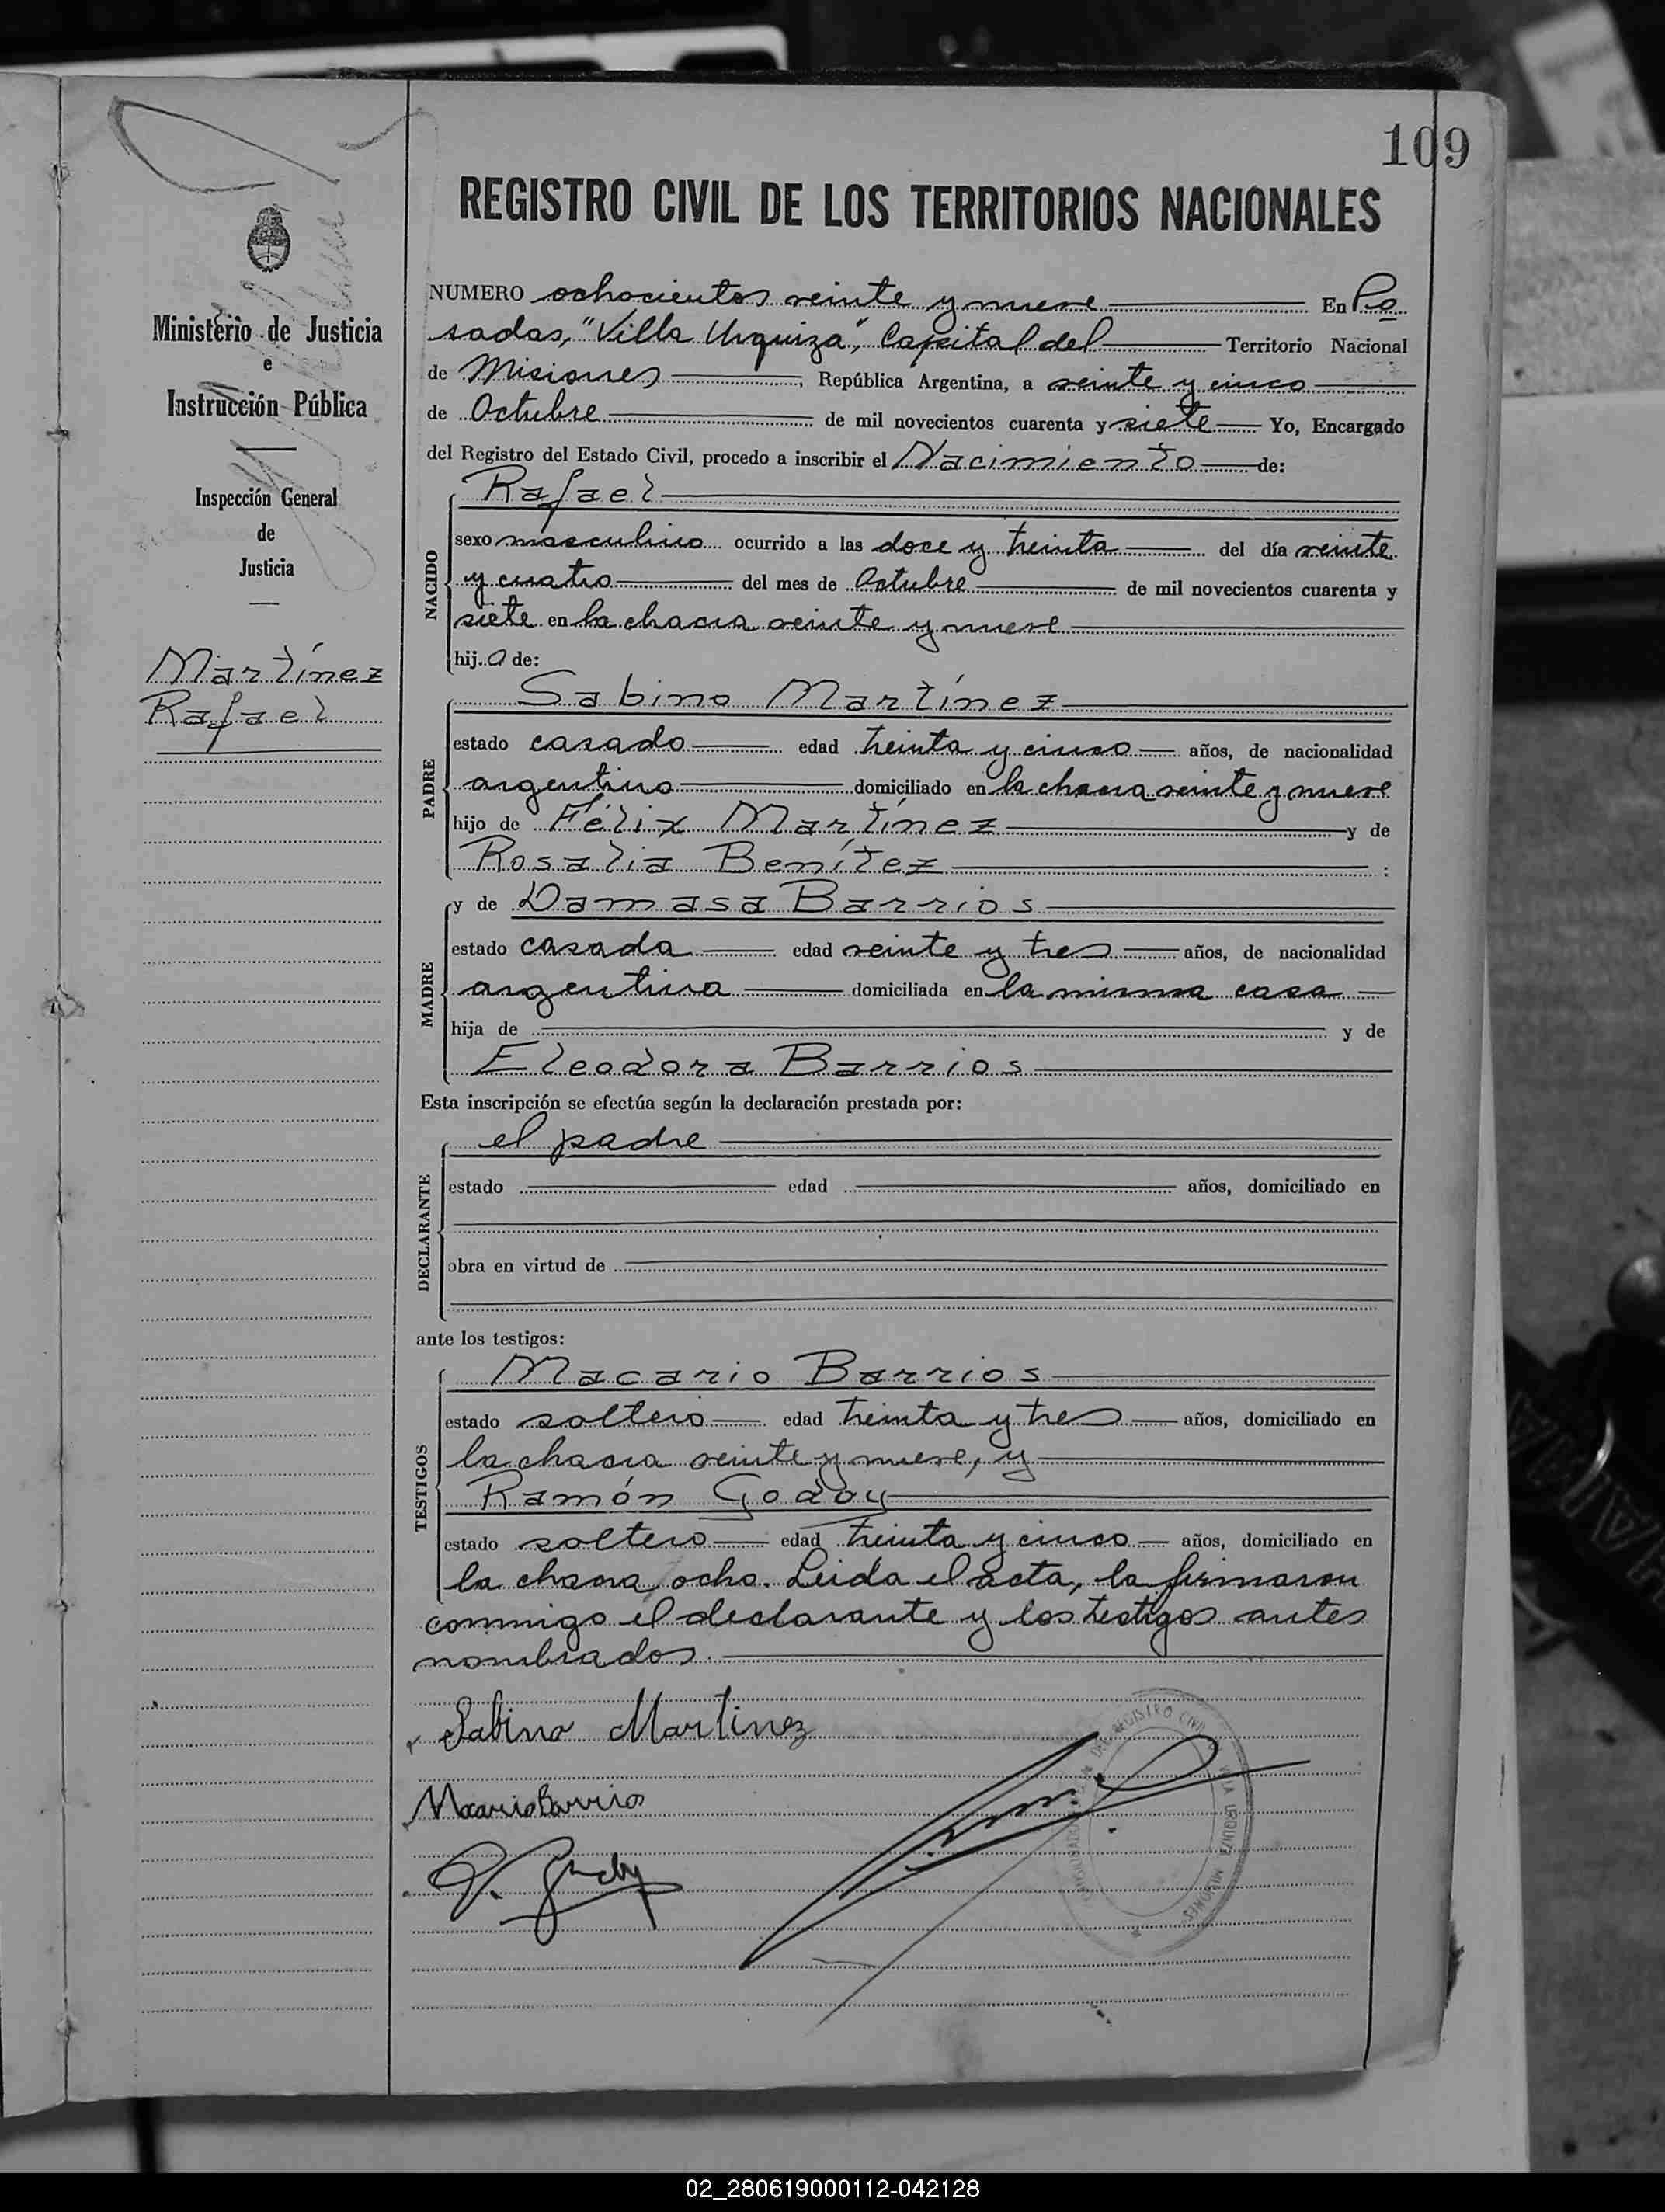 109
REGISTRO CIVIL DE LOS TERRITORIOS NACIONALES
Ministerio de Justicia
e
Instrucción Pública
Inspección General
de
Justicia
Martínez
Rafael
NUMERO ochocientos veinte y nueve En Po
sadas, "Villa Urquiza", Capital del Territorio Nacional
de Misiones, República Argentina, a veinte y cinco
de Octubre de mil novecientos cuarenta y siete Yo, Encargado
del Registro del Estado Civil, procedo a inscribir el Nacimiento de:
NACIDO
Rafael
sexo masculino ocurrido a las doce y treinta del día veinte
y cuatro del mes de Octubre de mil novecientos cuarenta y
siete en la chacra veinte y nueve
hijo de:
PADRE
Sabino Martínez
estado casado edad treinta y cinco años, de nacionalidad
argentino domiciliado en la chacra veinte y nueve
hijo de Félix Martínez y de
Rosalia Benítez :
MADRE
y de Damasa Barrios
estado casada edad veinte y tres años, de nacionalidad
argentina domiciliada en la misma casa
hija de y de
Eleodora Barrios
Esta inscripción se efectúa según la declaración prestada por:
DECLARANTE
el padre
estado edad años, domiciliado en
obra en virtud de
ante los testigos:
TESTIGOS
Macario Barrios
estado soltero edad treinta y tres años, domiciliado en
la chacra veinte y nueve, y
Ramón Godoy
estado soltero edad treinta y cinco años, domiciliado en
la chacra ocho. Leida el acta, la firmaron
conmigo el declarante y los testigos antes
nombrados.
Sabino Martinez
Macario Barrios
R. Godoy
REGISTRO CIVIL VILLA URQUIZA MISIONES
02_280619000112-042128